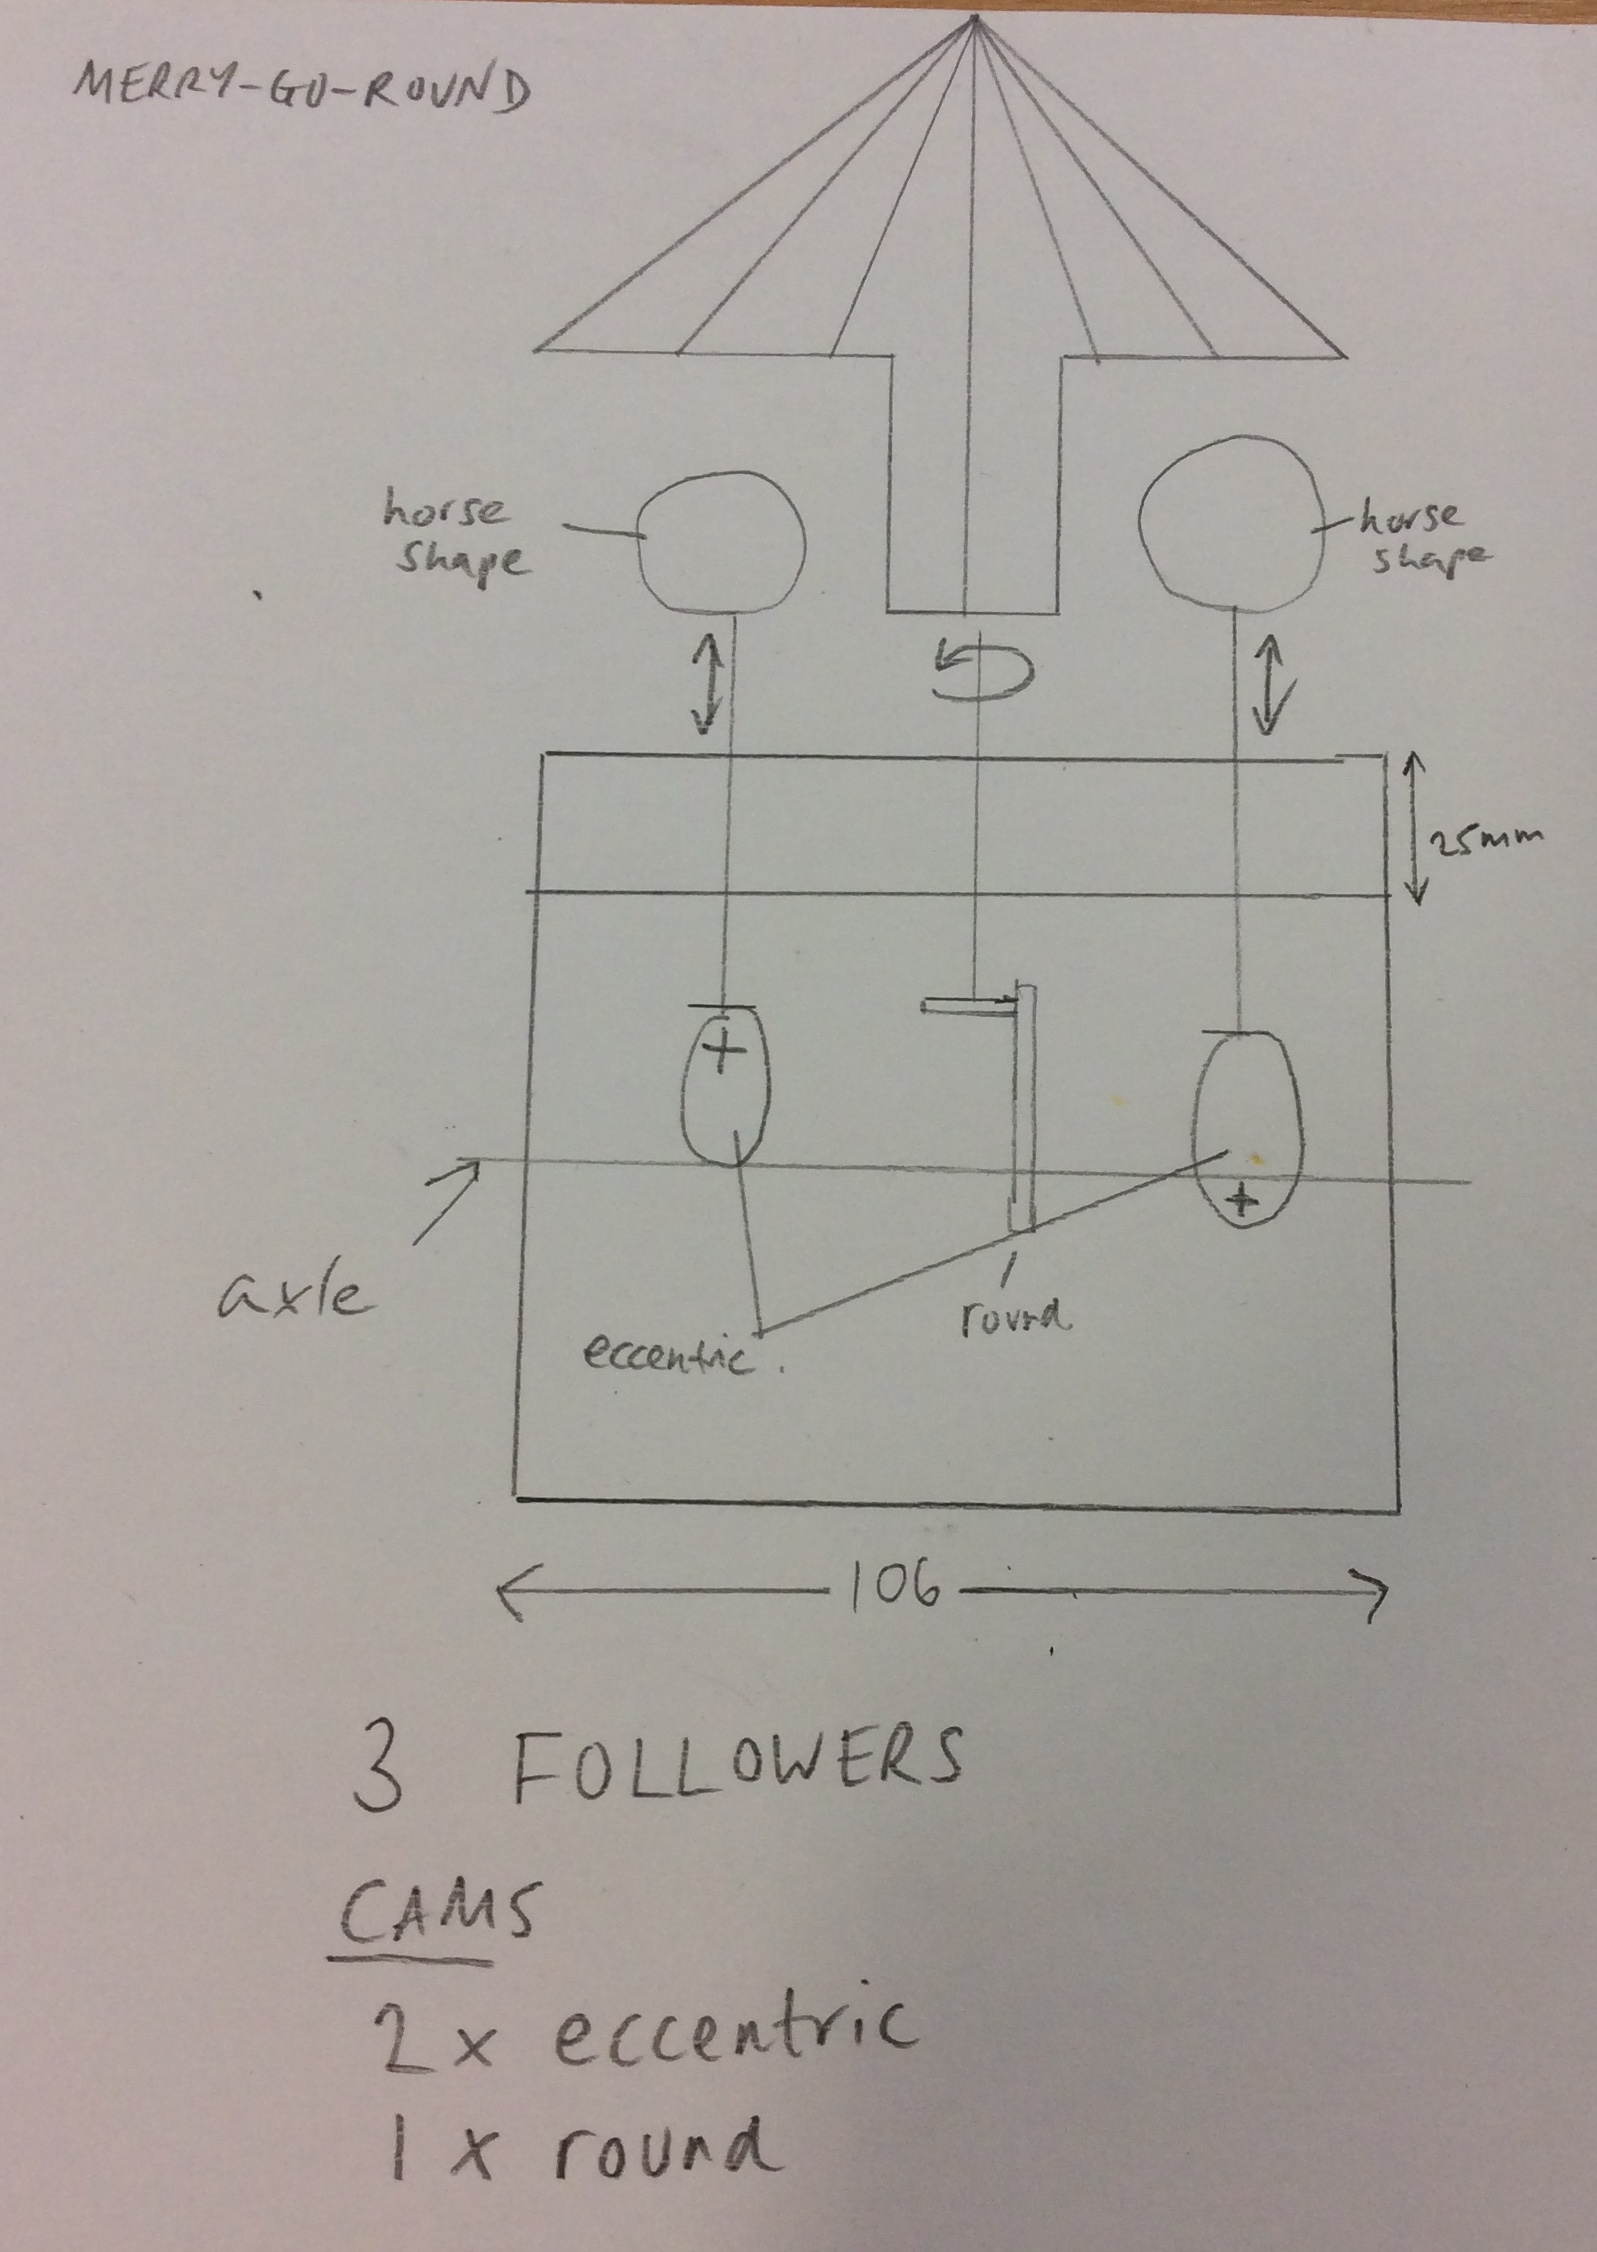 MERRY-GO-ROUND
horse
shape
horse
shape
25mm
axle
eccentric.
round
106
3 FOLLOWERS
CAMS
2 x eccentric
1 x round